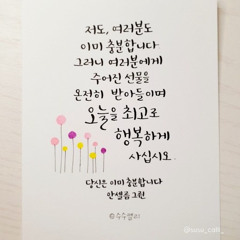 저도, 여러분도
이미 충분합니다
그러니 여러분에게
주어진 선물을
온전히 받아들이며
오늘을 최고로
행복하게
사십시오.
당신은 이미 충분합니다
안셀름 그륀
@수수캘리